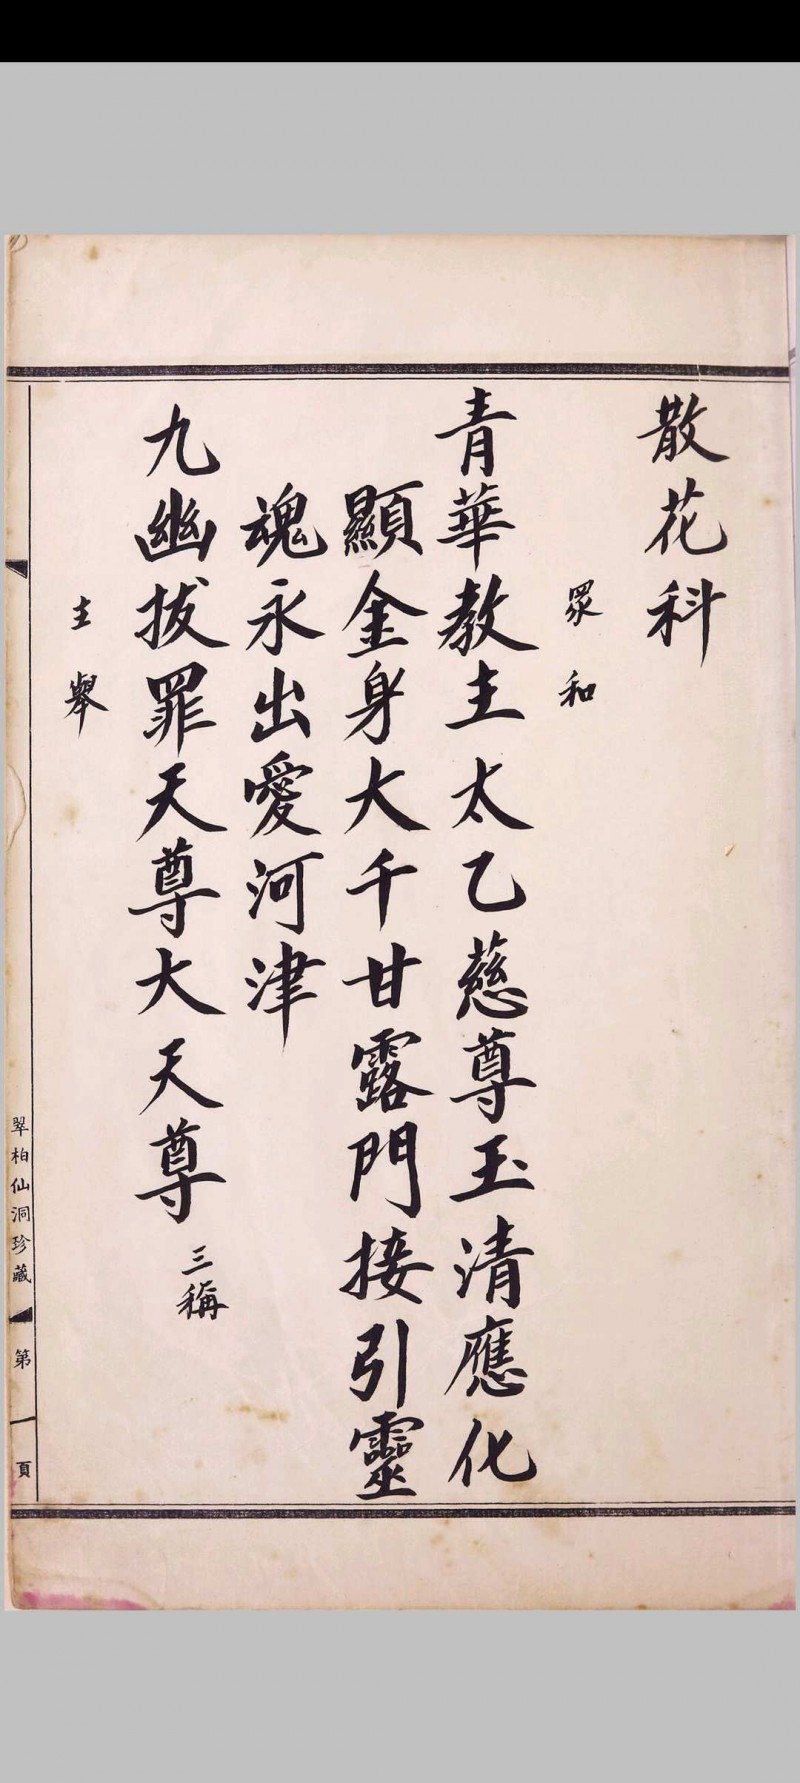 散花科
眾和
青華教主太乙慈尊玉清應化
顯金身大千甘露門接引靈
魂永出愛河津
九幽拔罪天尊大天尊
三稱
主舉
翠柏仙洞珍藏
第一頁